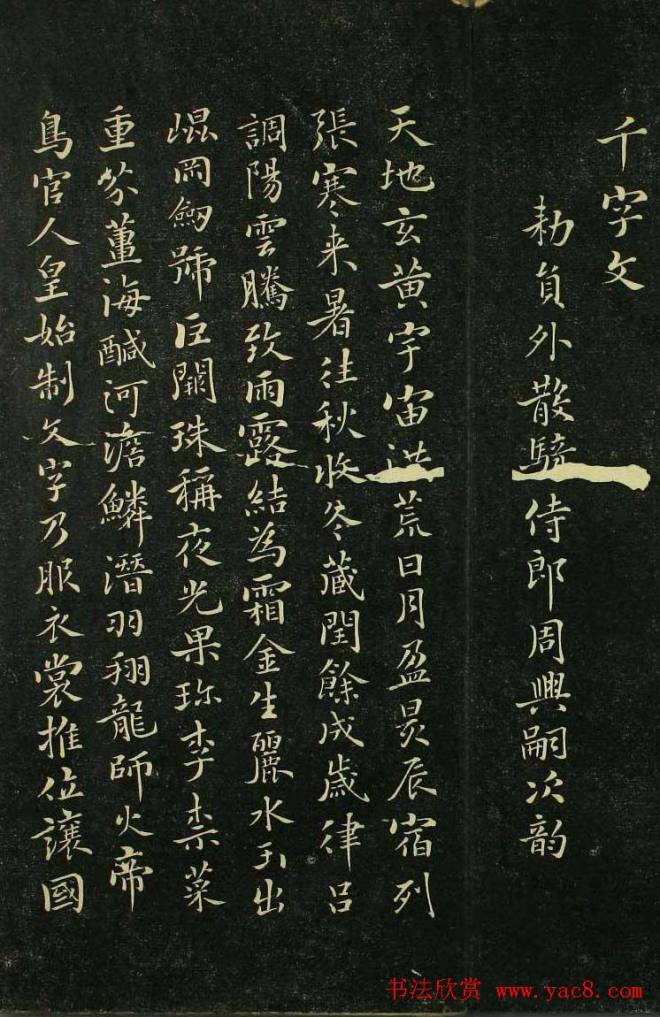 千字文
勑員外散騎侍郎周興嗣次韵
天地玄黃宇宙洪荒日月盈昃辰宿列
張寒来暑往秋收冬藏閏餘成歲律吕
調陽雲騰致雨露結為霜金生麗水玉出
崐岡劒號巨闕珠稱夜光果珎李柰菜
重芥薑海醎河澹鱗潛羽翔龍師火帝
鳥官人皇始制文字乃服衣裳推位讓國
书法欣赏 www.yac8.com